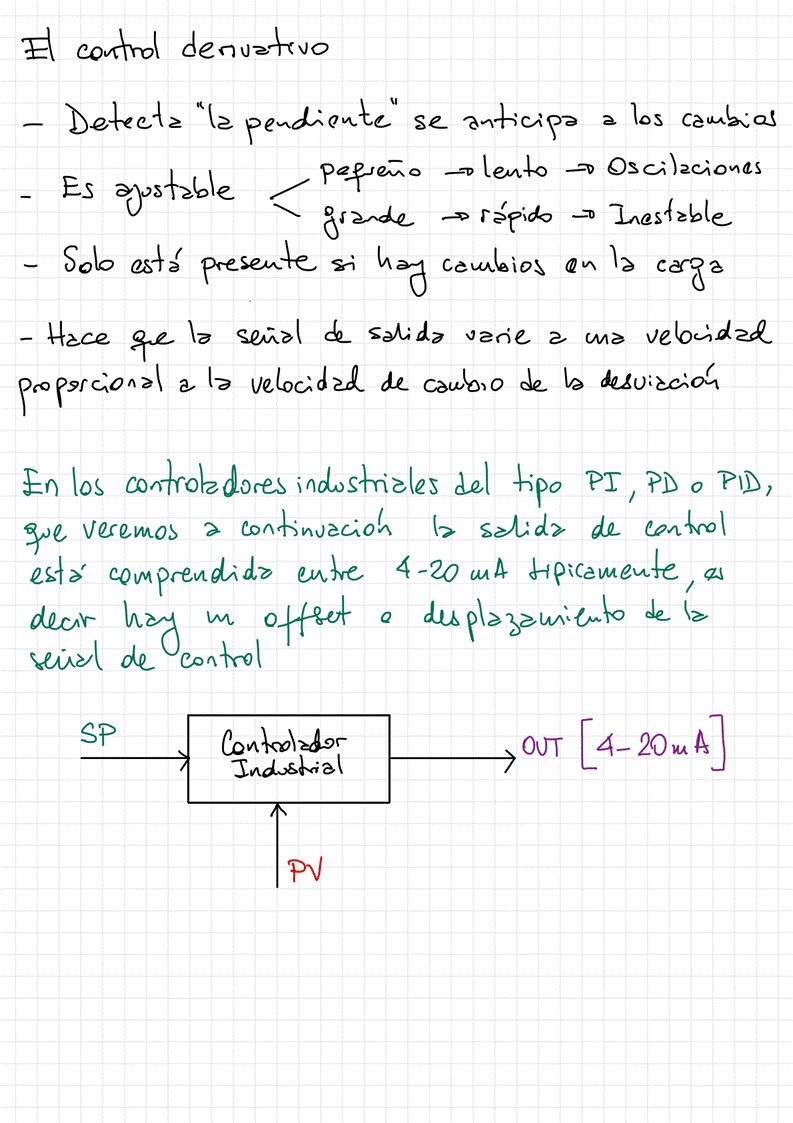 El control derivativo
- Detecta "la pendiente" se anticipa a los cambios
- Es ajustable
pequeño → lento → Oscilaciones
grande → rápido → Inestable
- Solo está presente si hay cambios en la carga
- Hace que la señal de salida varie a una velocidad
proporcional a la velocidad de cambio de la desviación
En los controladores industriales del tipo PI, PD o PID,
que veremos a continuación la salida de control
está comprendida entre 4-20 mA tipicamente, es
decir hay un offset o desplazamiento de la
señal de control
SP
Controlador
Industrial
OUT [4-20 mA]
PV